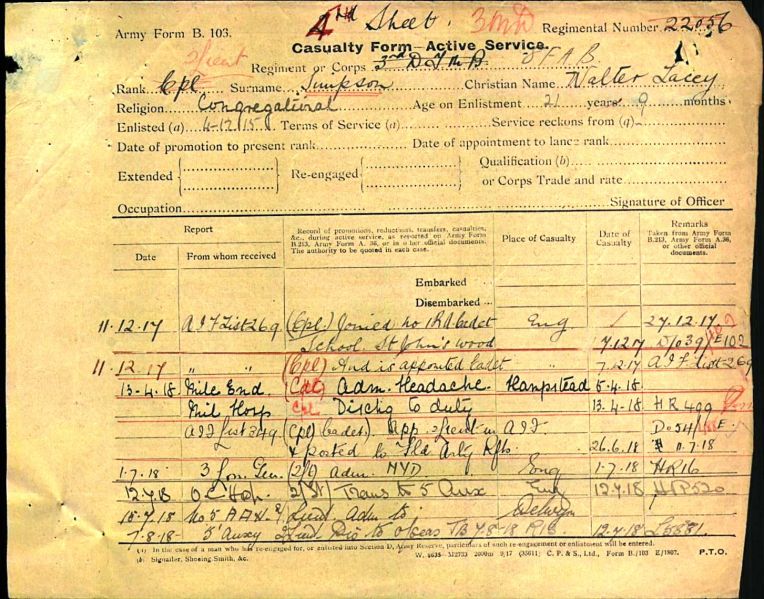 4TH Sheet. 3MD
Army Form B. 103. Regimental Number 22056
Casualty Form—Active Service.
Regiment or Corps 3rd D 3FAB
Rank Cpl Surname Simpson Christian Name Walter Lacey
Religion Congregational Age on Enlistment 21 years 9 months
Enlisted (a) 4-12/15 Terms of Service (a) Service reckons from (a)
Date of promotion to present rank Date of appointment to lance rank
Extended Re-engaged Qualification (b)
or Corps Trade and rate
Occupation Signature of Officer
Report
Date From whom received
Record of promotions, reductions, transfers, casualties,
&c., during active service, as reported on Army Form
B.213, Army Form A. 36, or in other official documents.
The authority to be quoted in each case.
Place of Casualty
Date of Casualty
Remarks
Taken from Army Form
B.213, Army Form A.36,
or other official
documents.
Embarked
Disembarked
11.12.17 AIF List 269 (Cpl) Joined no 1 R.A. Cadet Eng 27.12.17
School St John's Wood 7.12.17 D/039/E102
11.12.17 " " (Cpl) And is appointed Cadet " 7.12.17 AIF List 269
13-4-18 Mile End (Cdt) Adm. Headache Hampstead 5-4-18
Mil Hosp Cpl Dischg to duty 13-4-18 HR 499
AIF List 349 (Cpl Cadet) App. in AIF Do54/ E
& posted to Fld Arty Rfts 26.6.18 11.7.18
1.7.18 3 Lon. Gen. (2/Lt) adm. NYD Eng 1.7.18 HR16
12.7.18 O C Hop 2/Lt) Trans to 5 Aux Eng 12.7.18 HR520
15.7.18 No 5 AAX Lieut. Adm to
7.8.18 5 Auxy 2Lieut Dis to 7-8-18 12.7.18 L5881
(a) In the case of a man who has re-engaged for, or enlisted into Section D, Army Reserve, particulars of such re-engagement or enlistment will be entered.
(b) Signaller, Shoeing-Smith, &c. C. P. & S., Ltd., Form B./103 E/1807. P.T.O.